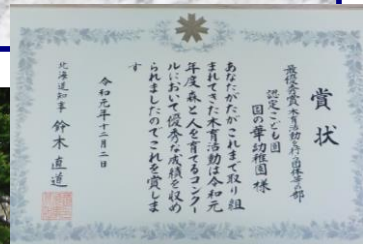 賞状
最優秀賞(木育活動を行う団体等の部)
認定こども園
国の華幼稚園様
あなたがたがこれまで取り組
まれてきた木育活動は令和元
年度森と人を育てるコンクー
ルにおいて優秀な成績を収め
られましたのでこれを賞しま
す
令和元年十二月二日
北海道知事 鈴木直道